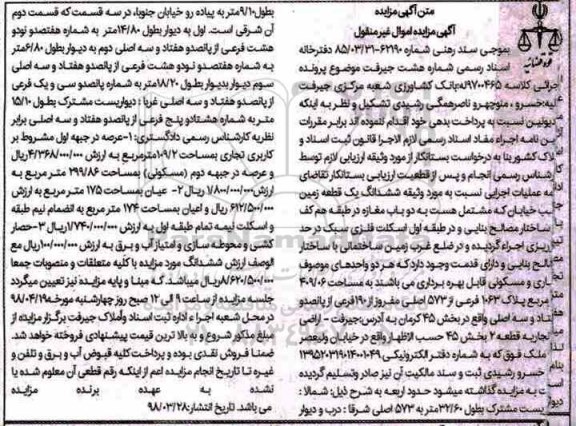 متن آگهی مزایده
آگهی مزایده اموال غیر منقول
بموجب سند رهنی شماره ۶۲۱۹۰-۸۵/۰۳/۳۱ دفترخانه
اسناد رسمی شماره هشت جیرفت موضوع پرونده
اجرائی کلاسه ۰۹۷۰۰۴۶۵ بانک کشاورزی شعبه مرکزی جیرفت
علیه: خسرو، منوچهر و ناصر همگی رشیدی تشکیل و نظر به اینکه
مدیونین نسبت به پرداخت بدهی خود اقدام ننموده اند برابر مقررات
آیین نامه اجراء مفاد اسناد رسمی لازم الاجرا قانون ثبت اسناد و
املاک کشور بنا به درخواست بستانکار از مورد وثیقه ارزیابی لازم توسط
کارشناس رسمی انجام و پس از قطعیت ارزیابی بستانکار تقاضای
ادامه عملیات اجرایی نسبت به مورد وثیقه ششدانگ یک قطعه زمین
جنب خیابان که مشتمل هست به دو باب مغازه در طبقه هم کف
با ساختار مصالح بنایی و در طبقه اول اسکلت فلزی سبک در حد
ریزی اجراء گردیده و در ضلع غربی زمین ساختمانی با ساختار
مصالح بنایی و دارای قدمت وجود دارد که هر دو واحدهای موصوف
تجاری و مسکونی قابل بهره برداری می باشند به مساحت ۴۰۹/۰۶
متر مربع پلاک ۱۰۶۳ فرعی از ۵۷۳ اصلی مفروز از ۱۹۰ فرعی از پانصدو
هفتاد و سه اصلی واقع در بخش ۴۵ کرمان به آدرس: جیرفت - اراضی
قطعه ۲ بخش ۴۵ حسب الاظهار واقع در خیابان ولیعصر
ملک فوق که به شماره دفتر الکترونیکی ۱۳۹۵۲۰۳۱۹۰۱۴۰۰۱۰۴۹
خسرو رشیدی ثبت و سند مالکیت آن نیز صادر و تسلیم گردیده
است به مزایده گذاشته میشود حدود اربعه به شرح ذیل: شمالا:
دیواریست مشترک بطول ۳۲/۶۰ متر به ۵۷۳ اصلی شرقا: درب و دیوار
بطول ۹/۱۰ متر به پیاده رو خیابان جنوبا، در سه قسمت که قسمت دوم
آن شرقی است. اول به دیوار بطول ۱۴/۸۰ متر به شماره هفتصدو نودو
هشت فرعی از پانصدو هفتاد و سه اصلی دوم به دیوار بطول ۶/۸۰ متر
به شماره هفتصدو نودو هشت فرعی از پانصدو هفتاد و سه اصلی
سوم دیوار بدیوار بطول ۱۸/۲۰ متر به شماره پانصدو سی و یک فرعی
از پانصدو هفتاد و سه اصلی غربا: دیواریست مشترک بطول ۱۵/۱۰
متر به شماره هشتادو پنج فرعی از پانصدو هفتاد و سه اصلی برابر
نظریه کارشناس رسمی دادگستری: ۱-عرصه در جبهه اول مشروط بر
کاربری تجاری بمساحت ۱۰۹/۲ متر مربع به ارزش ۴/۳۶۸/۰۰۰/۰۰۰ ریال
و عرصه در جبهه دوم (مسکونی) بمساحت ۲۹۹/۸۶ متر مربع به
ارزش ۱/۸۰۰/۰۰۰/۰۰۰ ریال ۲- عیان بمساحت ۱۷۵ متر مربع به ارزش
۶۱۲/۵۰۰/۰۰۰ ریال و اعیان بمساحت ۱۷۴ متر مربع به انضمام نیم طبقه
و اسکلت نیمه تمام طبقه اول به ارزش ۱/۷۴۰/۰۰۰/۰۰۰ ریال ۳-حصار
کشی و محوطه سازی و امتیاز آب و برق به ارزش ۱۰۰/۰۰۰/۰۰۰ ریال مع
الوصف ارزش ششدانگ مورد مزایده با کلیه متعلقات و منصوبات جمعا
۸/۶۲۰/۵۰۰/۰۰۰ ریال میباشد که مبنا و پایه مزایده نیز تعیین میگردد
جلسه مزایده از ساعت ۹ الی ۱۲ صبح روز چهارشنبه مورخه ۹۸/۰۴/۱۹
در محل شعبه اجراء اداره ثبت اسناد و املاک جیرفت برگزار مزایده از
مبلغ مذکور شروع و به بالاترین قیمت پیشنهادی فروخته خواهد شد.
ضمنا فروش نقدی بوده و پرداخت کلیه قبوض آب و برق و تلفن و
غیره تا تاریخ انجام مزایده اعم از اینکه رقم قطعی آن معلوم شده یا
نشده به عهده برنده مزایده
می باشد. تاریخ انتشار: ۹۸/۰۳/۲۸